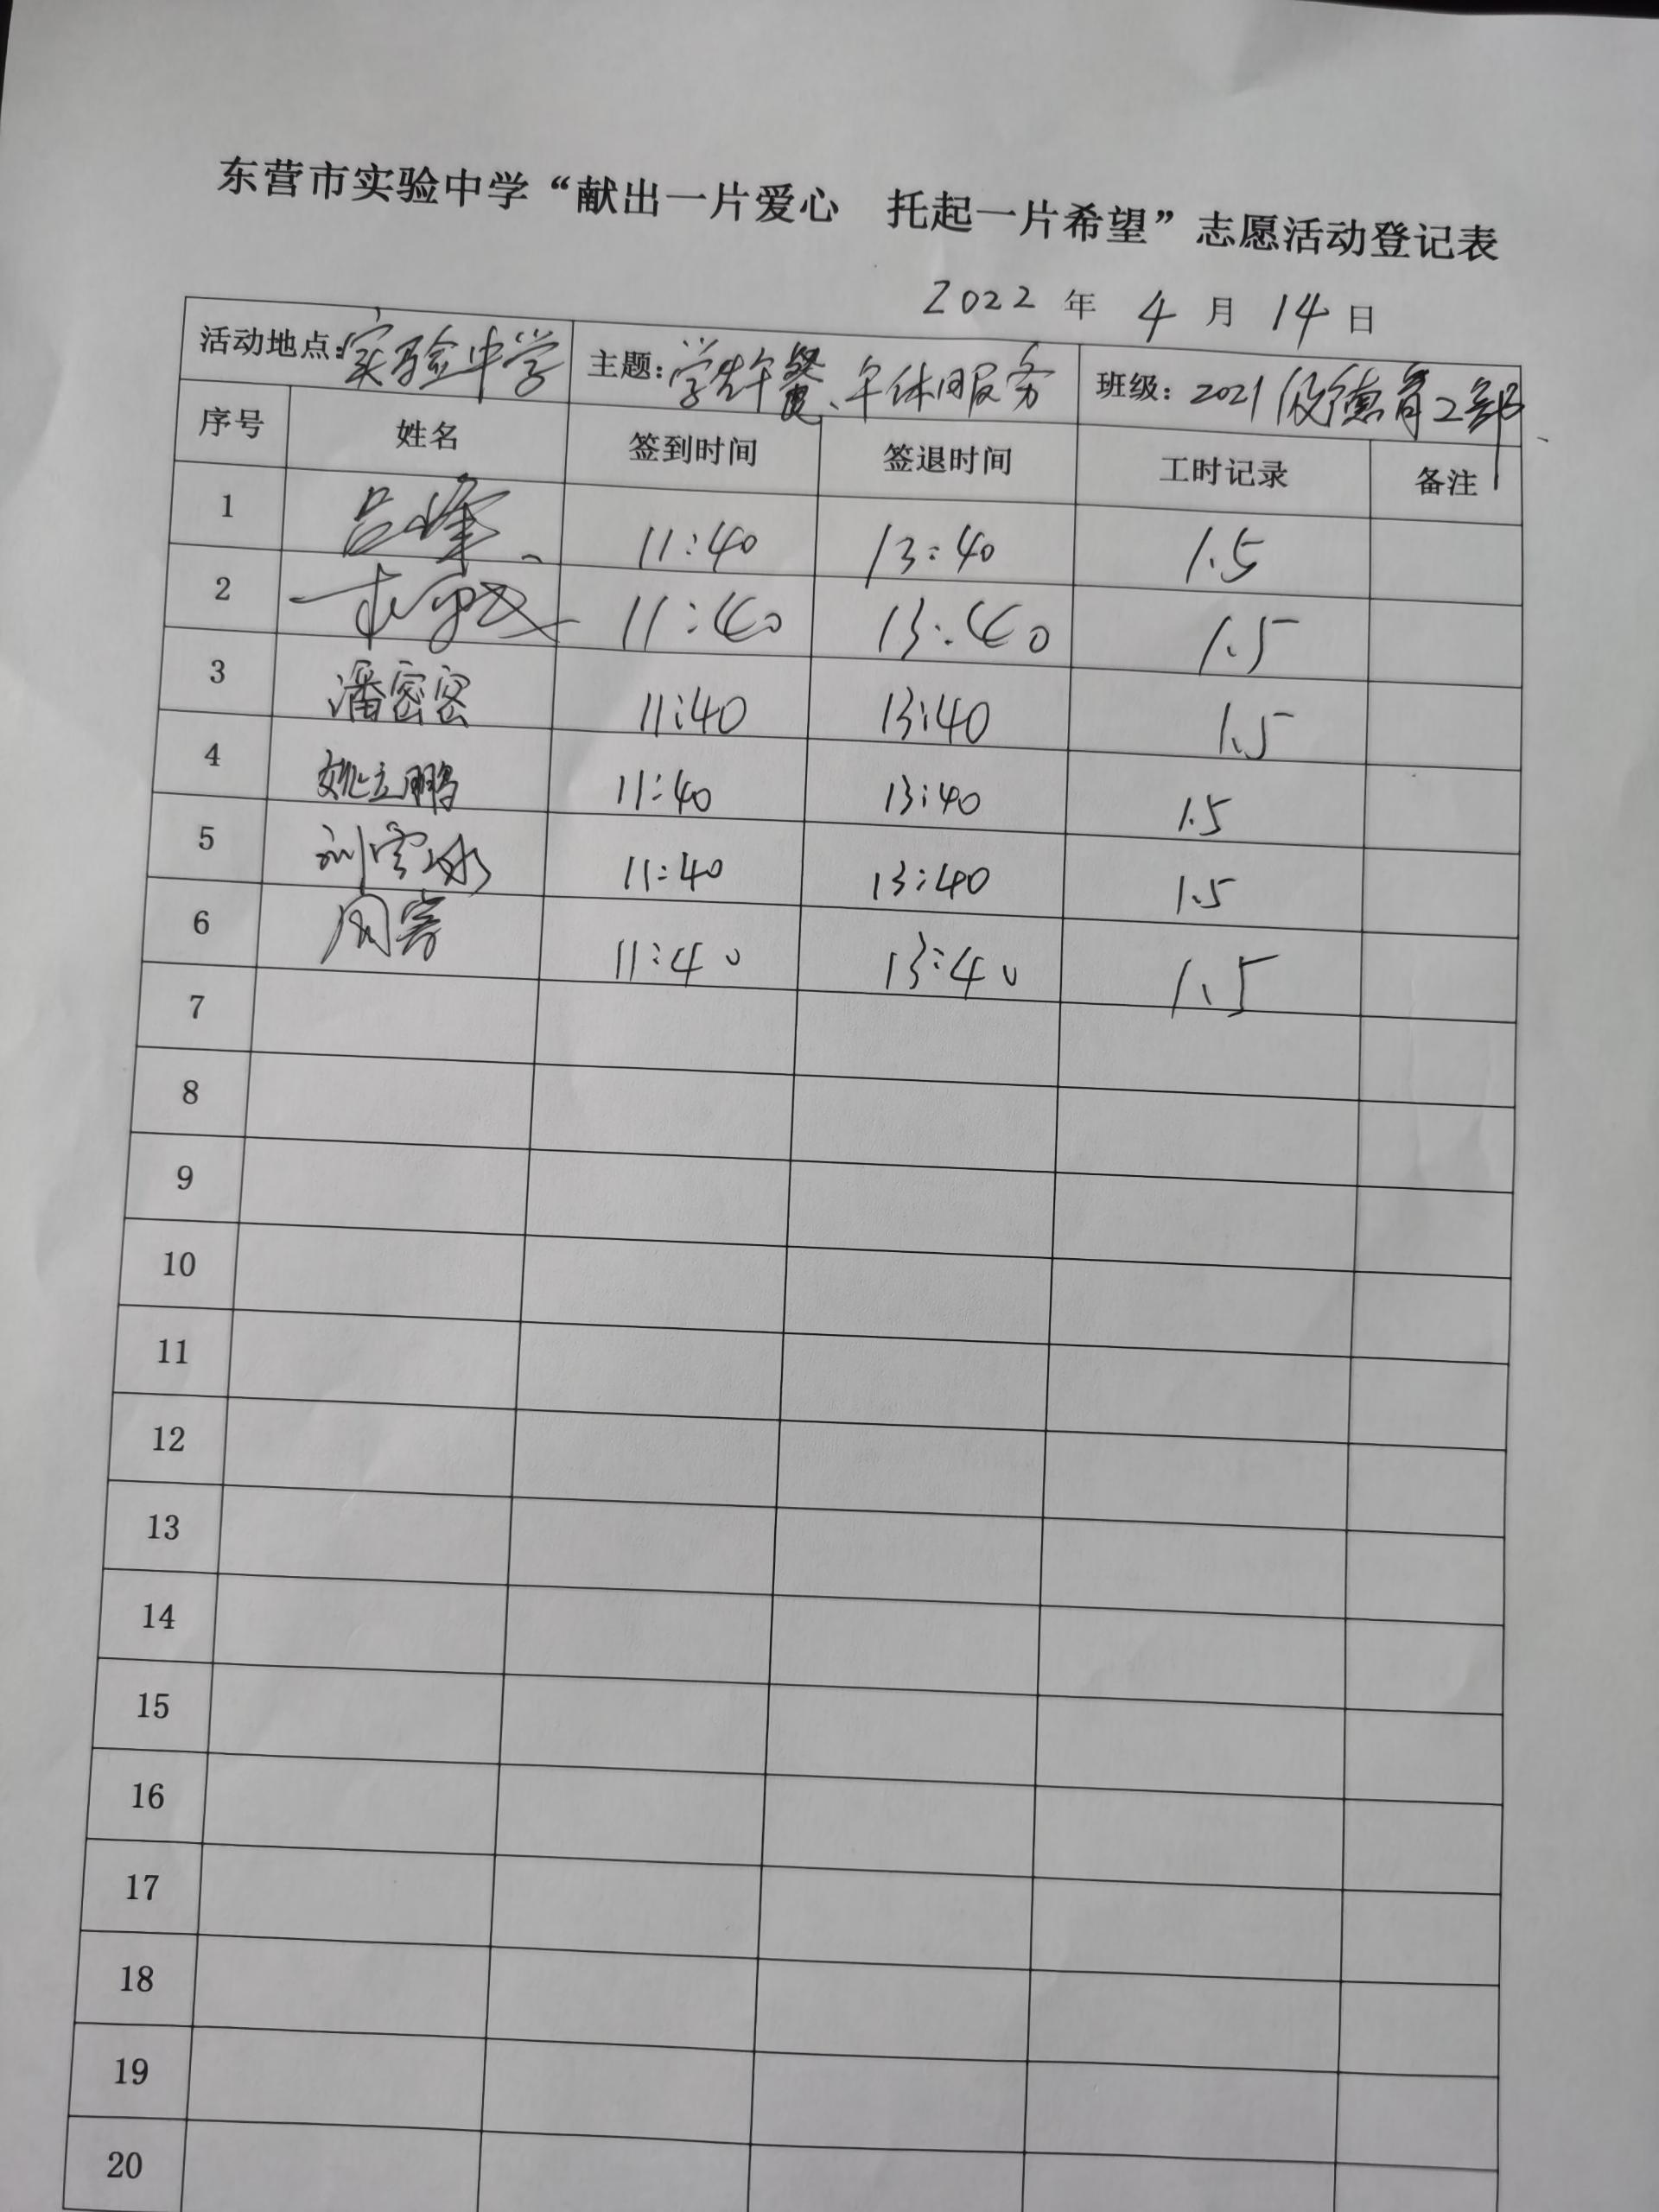 东营市实验中学“献出一片爱心 托起一片希望”志愿活动登记表
2022 年 4 月 14 日
活动地点:实验中学 主题:学生午餐、午休服务 班级:2021级德育2部
序号 姓名 签到时间 签退时间 工时记录 备注
1 吕峰 11:40 13:40 1.5
2 11:40 13:40 1.5
3 潘密密 11:40 13:40 1.5
4 姚立鹏 11:40 13:40 1.5
5 刘雪冰 11:40 13:40 1.5
6 周 11:40 13:40 1.5
7
8
9
10
11
12
13
14
15
16
17
18
19
20